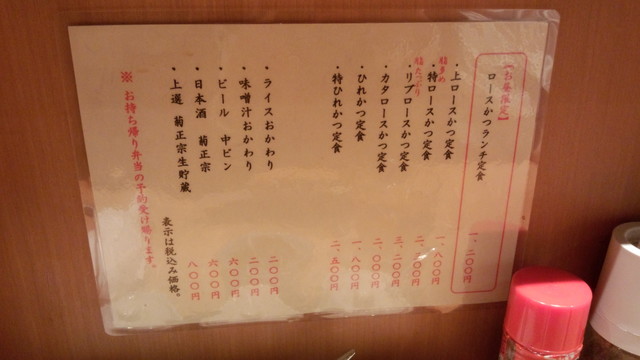 【お昼限定】
ロースかつランチ定食 一、二〇〇円
・上ロースかつ定食 一、八〇〇円
脂多め
・特ロースかつ定食 二、二〇〇円
脂たっぷり
・リブロースかつ定食 三、二〇〇円
・カタロースかつ定食 二、〇〇〇円
・ひれかつ定食 一、八〇〇円
・特ひれかつ定食 二、五〇〇円
・ライスおかわり 二〇〇円
・味噌汁おかわり 二〇〇円
・ビール 中ビン 六〇〇円
・日本酒 菊正宗 六〇〇円
・上選 菊正宗生貯蔵 八〇〇円
表示は税込み価格。
※ お持ち帰り弁当の予約受け賜ります。